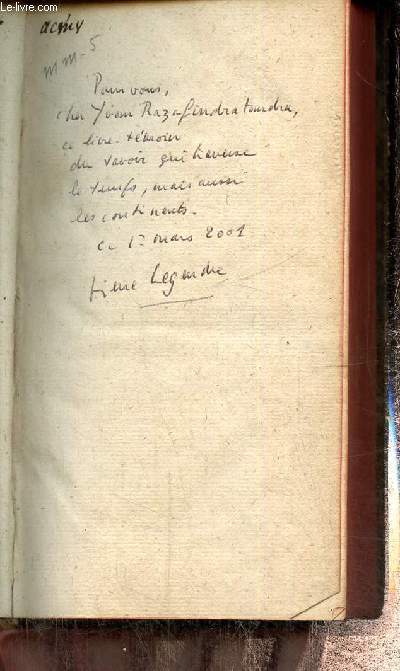 Le-livre.com
mm-5
Pour vous,
cher Yvon Razafindratandra,
ce livre-témoin
du savoir qui traverse
le temps, mais aussi
les continents.
ce 1er mars 2001
Pierre Legendre